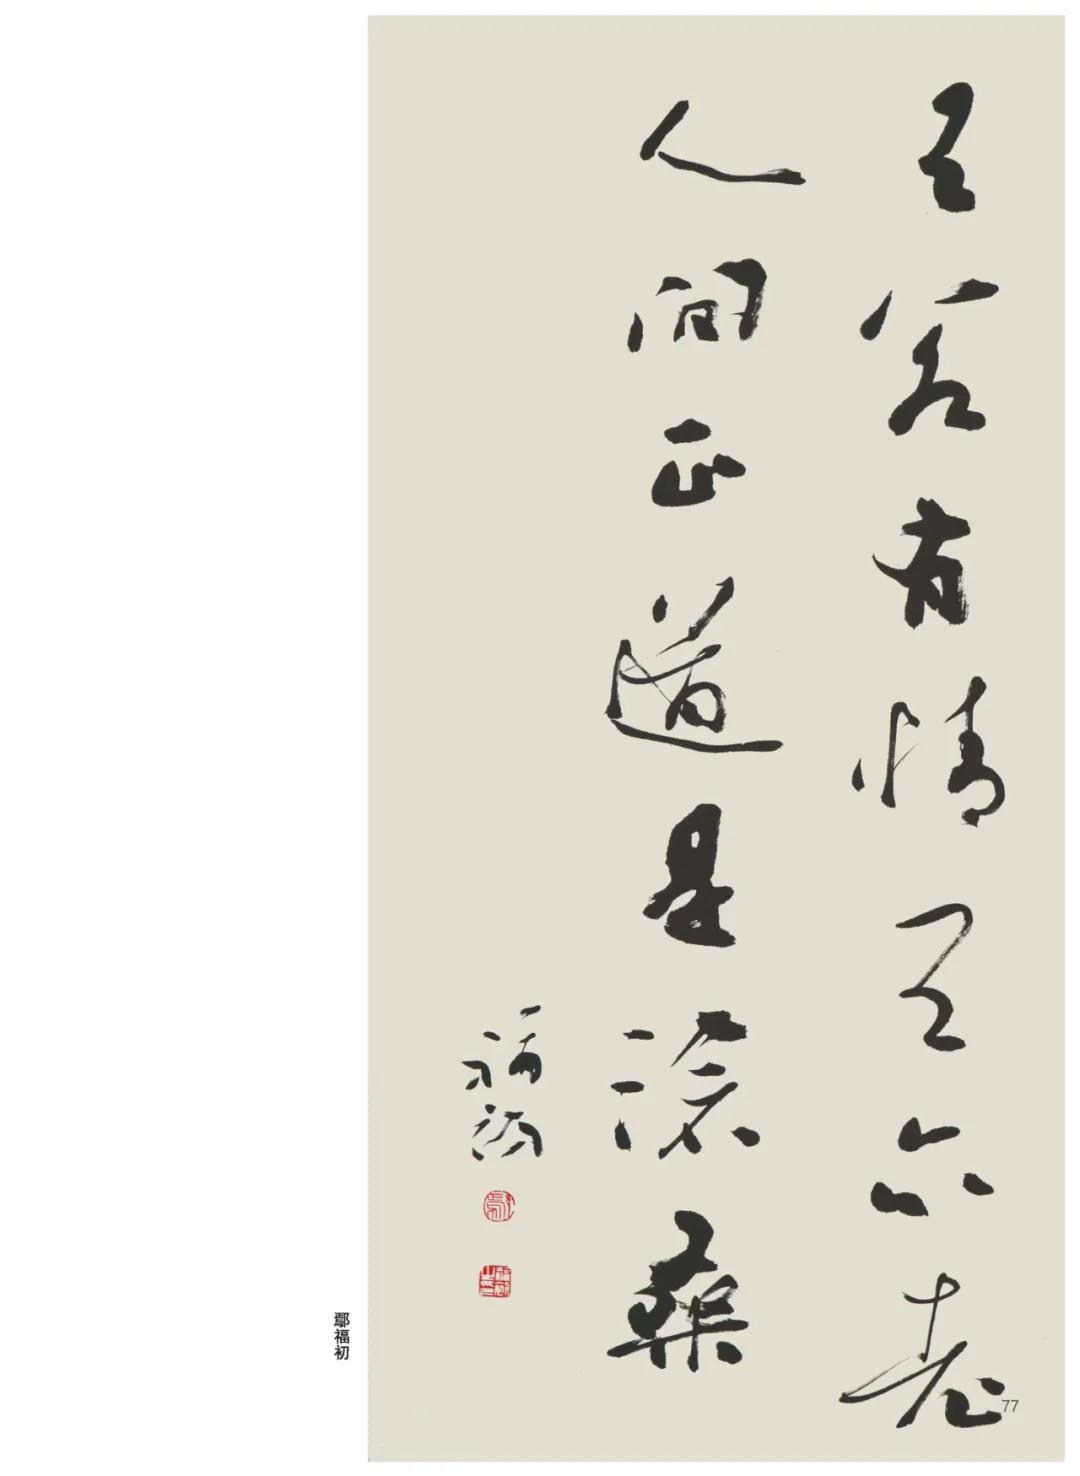 天若有情天亦老
人间正道是沧桑
福初
鄢福初
77